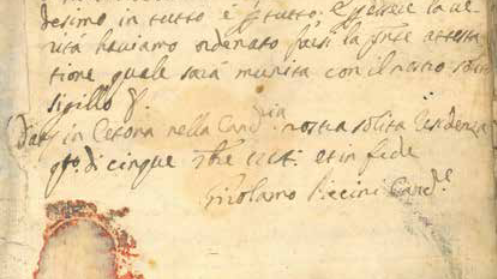 desimo in tutto è p tutto. E p essere la ve
rità haviamo ordenato farsi la pnte attesta
tione quale sarà munita con il nostro solito
sigillo &.
Dat in Cetona nella Canc.ria nostra solita residenza
q.to dì cinque 7bre et in fede
Girolamo Piccini Canc.e